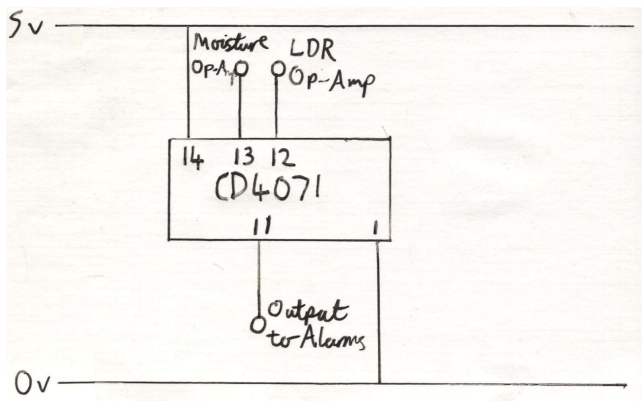 5v
Moisture
Op-Amp
LDR
Op-Amp
14 13 12
CD4071
11 1
Output
to Alarms
0v